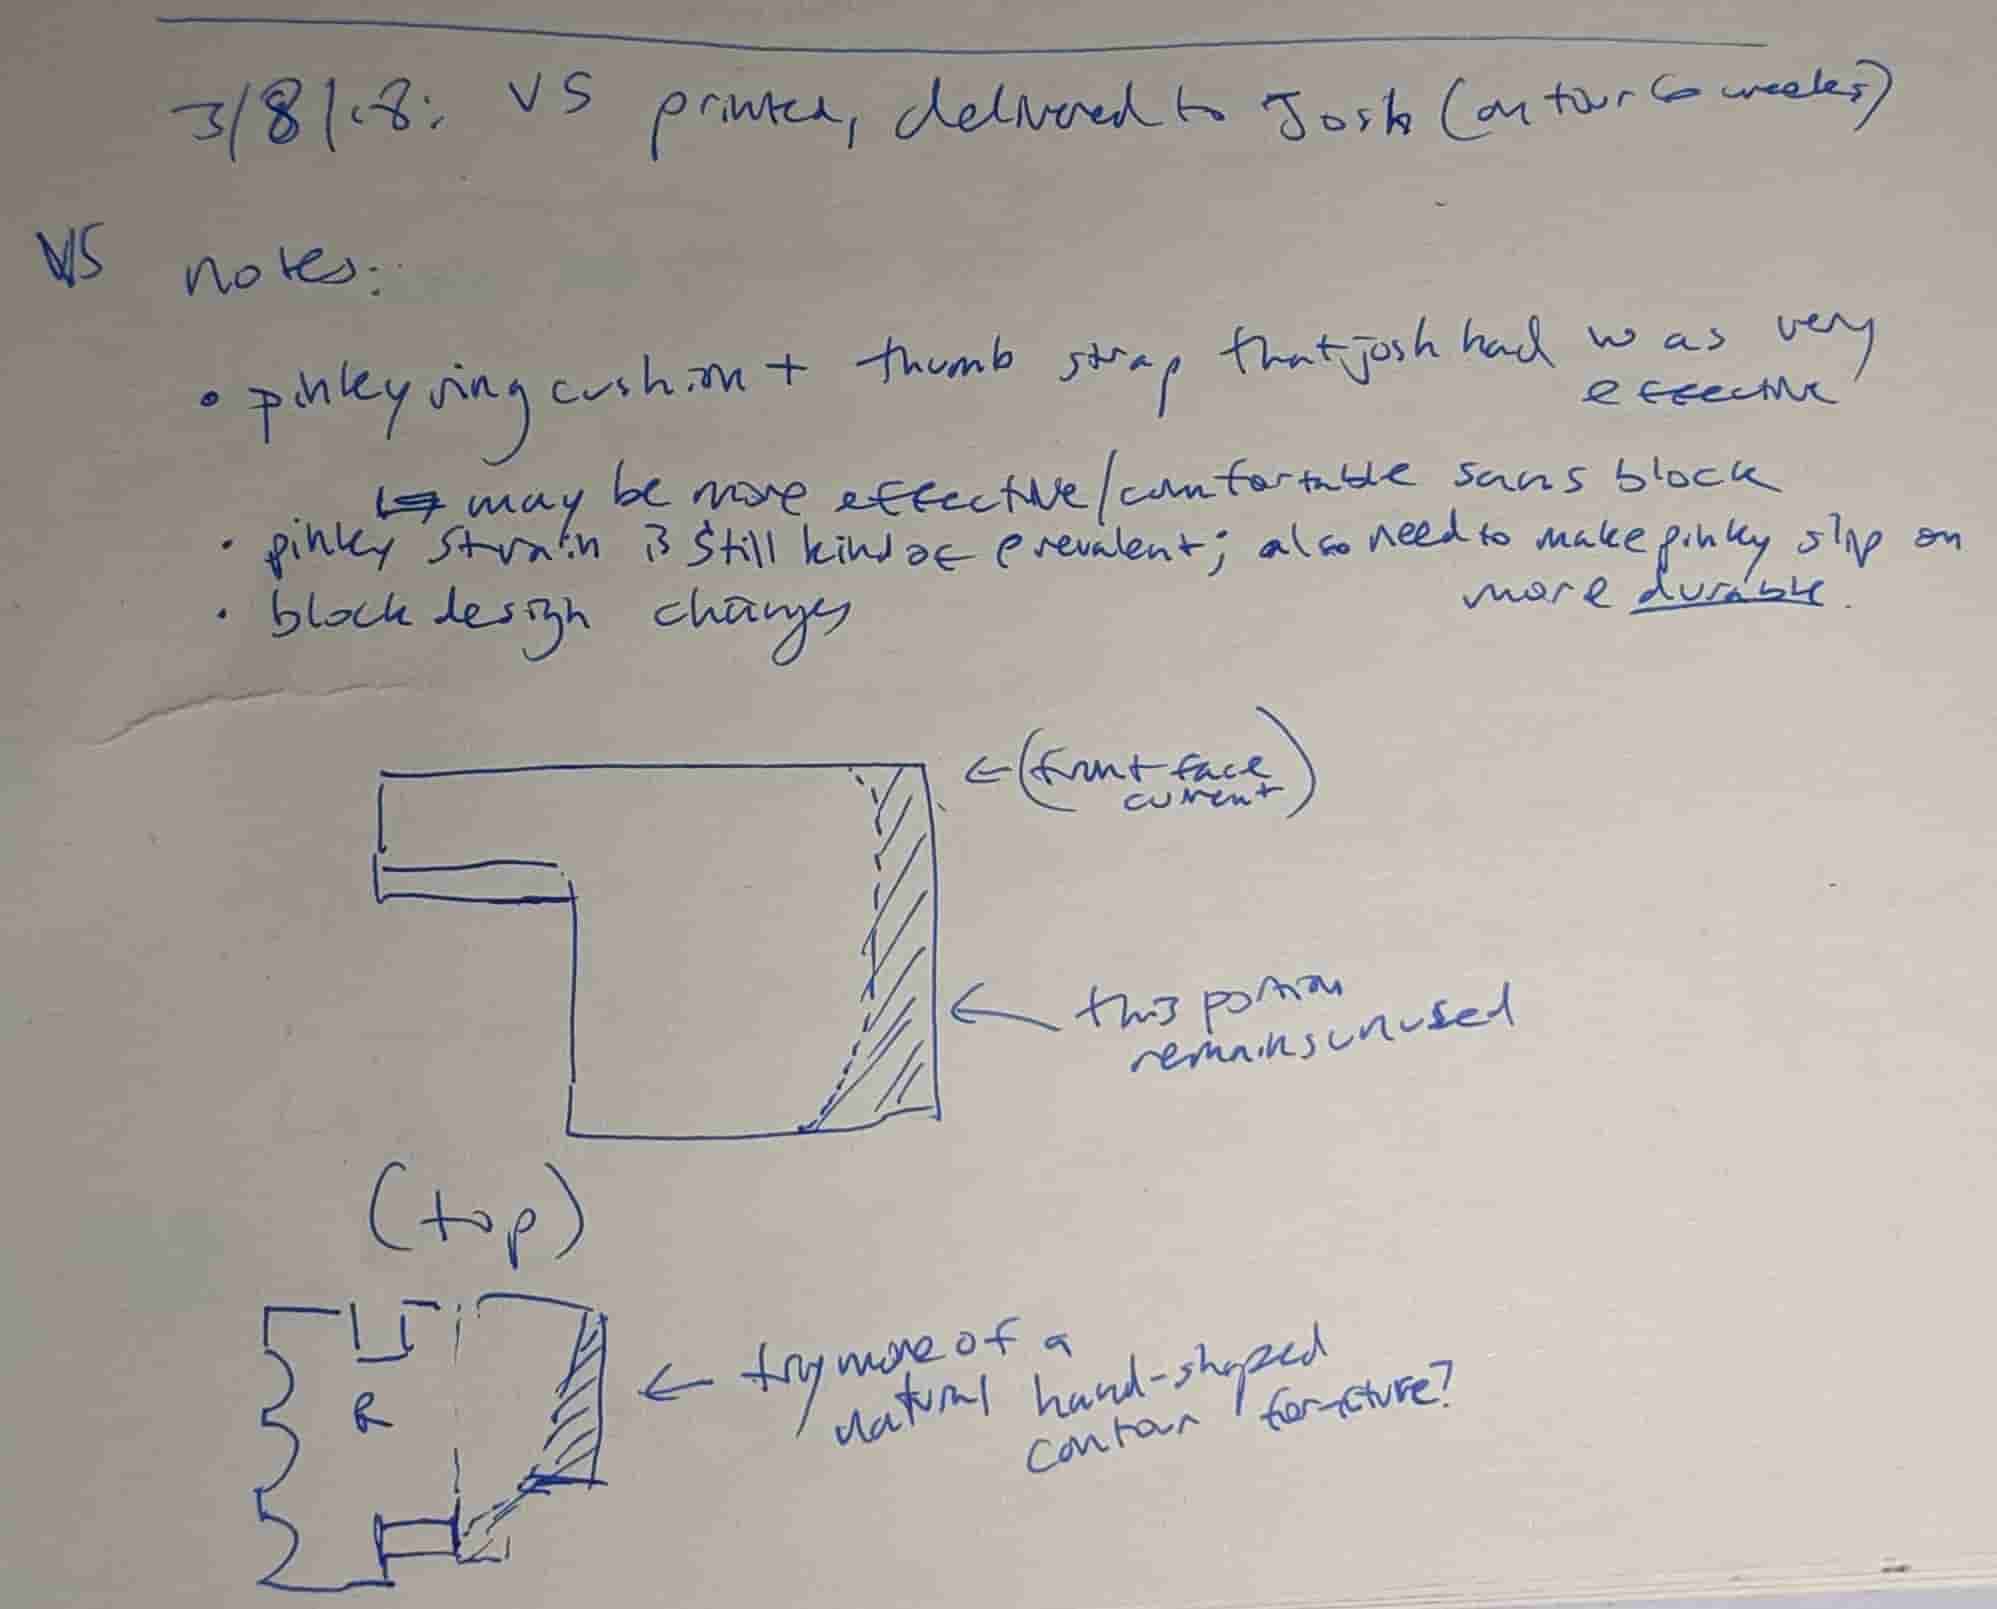 3/8/18: V5 printed, delivered to Josh (on tour 6 weeks)
V5 notes:
• pinky ring cushion + thumb strap that josh had was very
effective
↳ may be more effective/comfortable sans block
• pinky strain is still kind of prevalent; also need to make pinky slip on
more durable.
• block design changes
← (front face
current)
← this portion
remains unused
(top)
R
← try more of a
natural hand-shaped
contour for future?